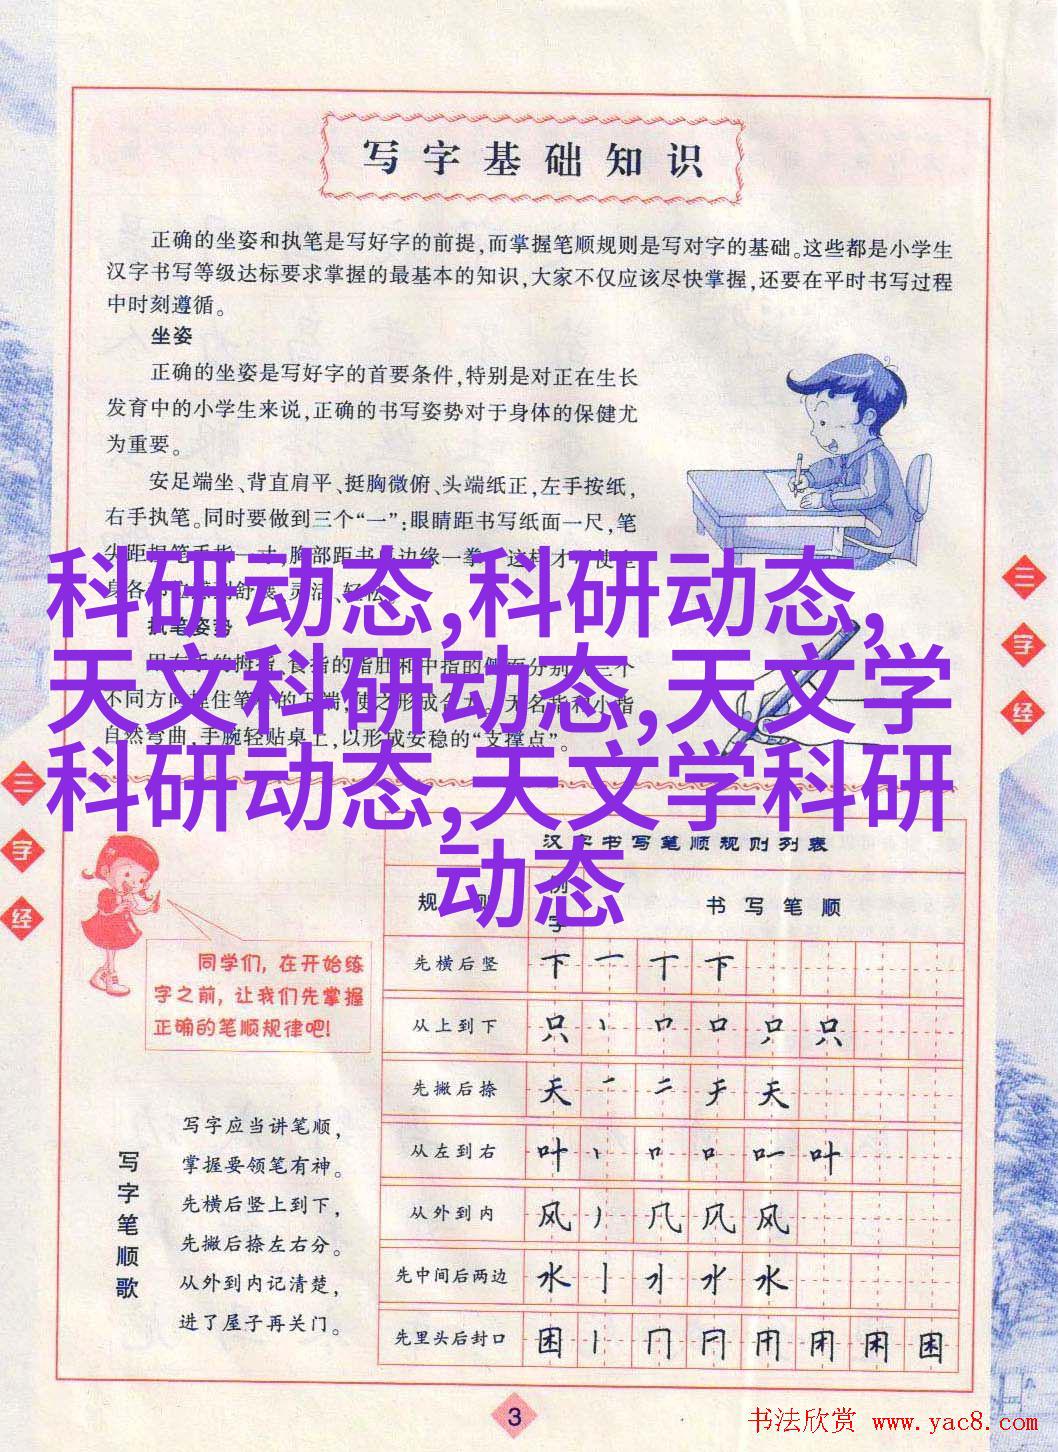 写字基础知识
正确的坐姿和执笔是写好字的前提,而掌握笔顺规则是写对字的基础。这些都是小学生
汉字书写等级达标要求掌握的最基本的知识,大家不仅应该尽快掌握,还要在平时书写过程
中时刻遵循。
坐姿
正确的坐姿是写好字的首要条件,特别是对正在生长
发育中的小学生来说,正确的书写姿势对于身体的保健尤
为重要。
安足端坐、背直肩平、挺胸微俯、头端纸正,左手按纸,
右手执笔。同时要做到三个“一”:眼睛距书写纸面一尺,笔
胸部距书 边缘一拳 这样才 使全
身各 舒 灵活、轻松。
执笔姿势
不同方向 住笔 的下端,使之形成合力。无名指和小指
自然弯曲,手腕轻贴桌上,以形成安稳的“支撑点”。
科研动态,科研动态,
天文科研动态,天文学
科研动态,天文学科研
动态
三
字
经
三
字
经
同学们,在开始练
字之前,让我们先掌握
正确的笔顺规律吧!
写字笔顺歌
写字应当讲笔顺,
掌握要领笔有神。
先横后竖上到下,
先撇后捺左右分。
从外到内记清楚,
进了屋子再关门。
汉字书写笔顺规则列表
规则 例字 书写笔顺
先横后竖 下 一 丅 下
从上到下 只 丶 口 口 只
先撇后捺 天 一 二 天
从左到右 叶 丶 口 口 叶
从外到内 风 丿 几 风 风
先中间后两边 水 亅 水
先里头后封口 困 丨 冂 困
3
书法欣赏 www.yac8.com